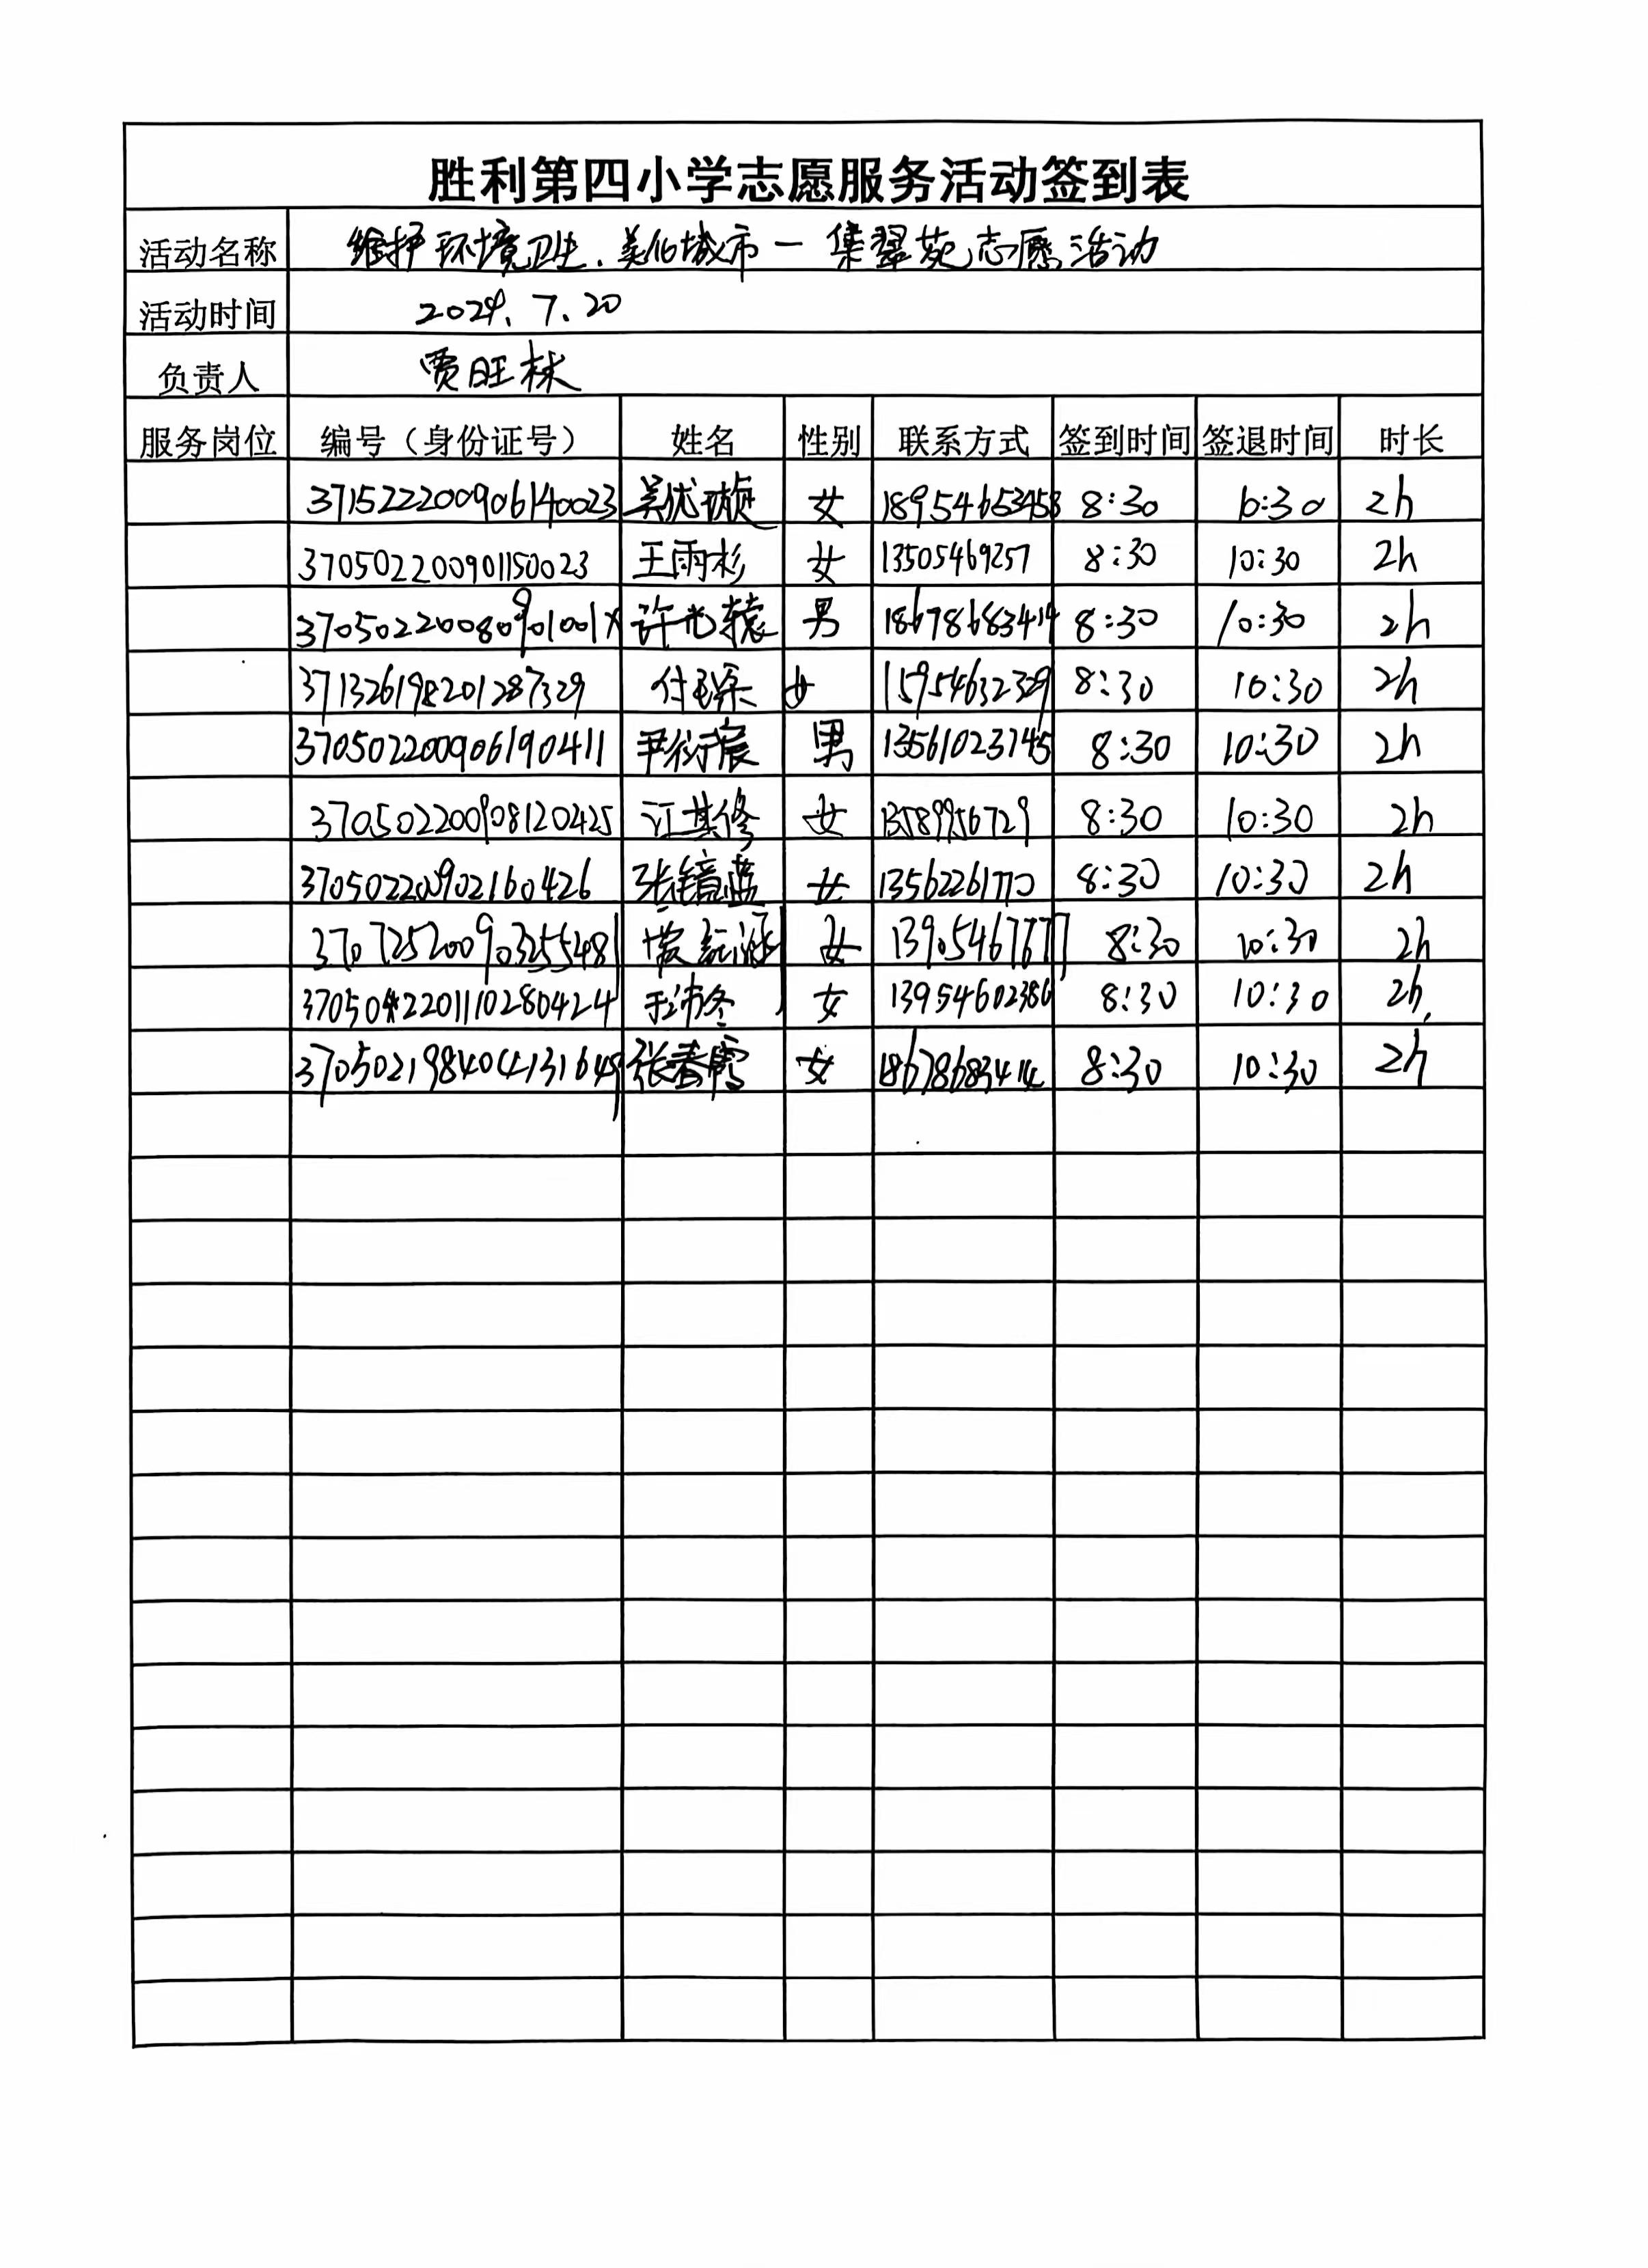 胜利第四小学志愿服务活动签到表
活动名称 维护环境卫生、美化城市一集翠苑志愿活动
活动时间 2024.7.20
负责人 贾旺林
服务岗位 编号（身份证号） 姓名 性别 联系方式 签到时间 签退时间 时长
371522200906140023 吴优璇 女 18954653458 8:30 10:30 2h
370502200901150023 王雨杉 女 13505469257 8:30 10:30 2h
37050220080901001X 许 辕 男 18678683414 8:30 10:30 2h
371326198201287329 付 女 15954632329 8:30 10:30 2h
370502200906190411 尹衍宸 男 13561023745 8:30 10:30 2h
370502200908120425 江其修 女 13589956729 8:30 10:30 2h
37050220902160426 张镱蓝 女 13562261770 8:30 10:30 2h
370725200903255481 女 13905467677 8:30 10:30 2h
22011102804 24 于沛冬 女 13954602386 8:30 10:30 2h
370502198404131649 张春霞 女 18678683414 8:30 10:30 2h